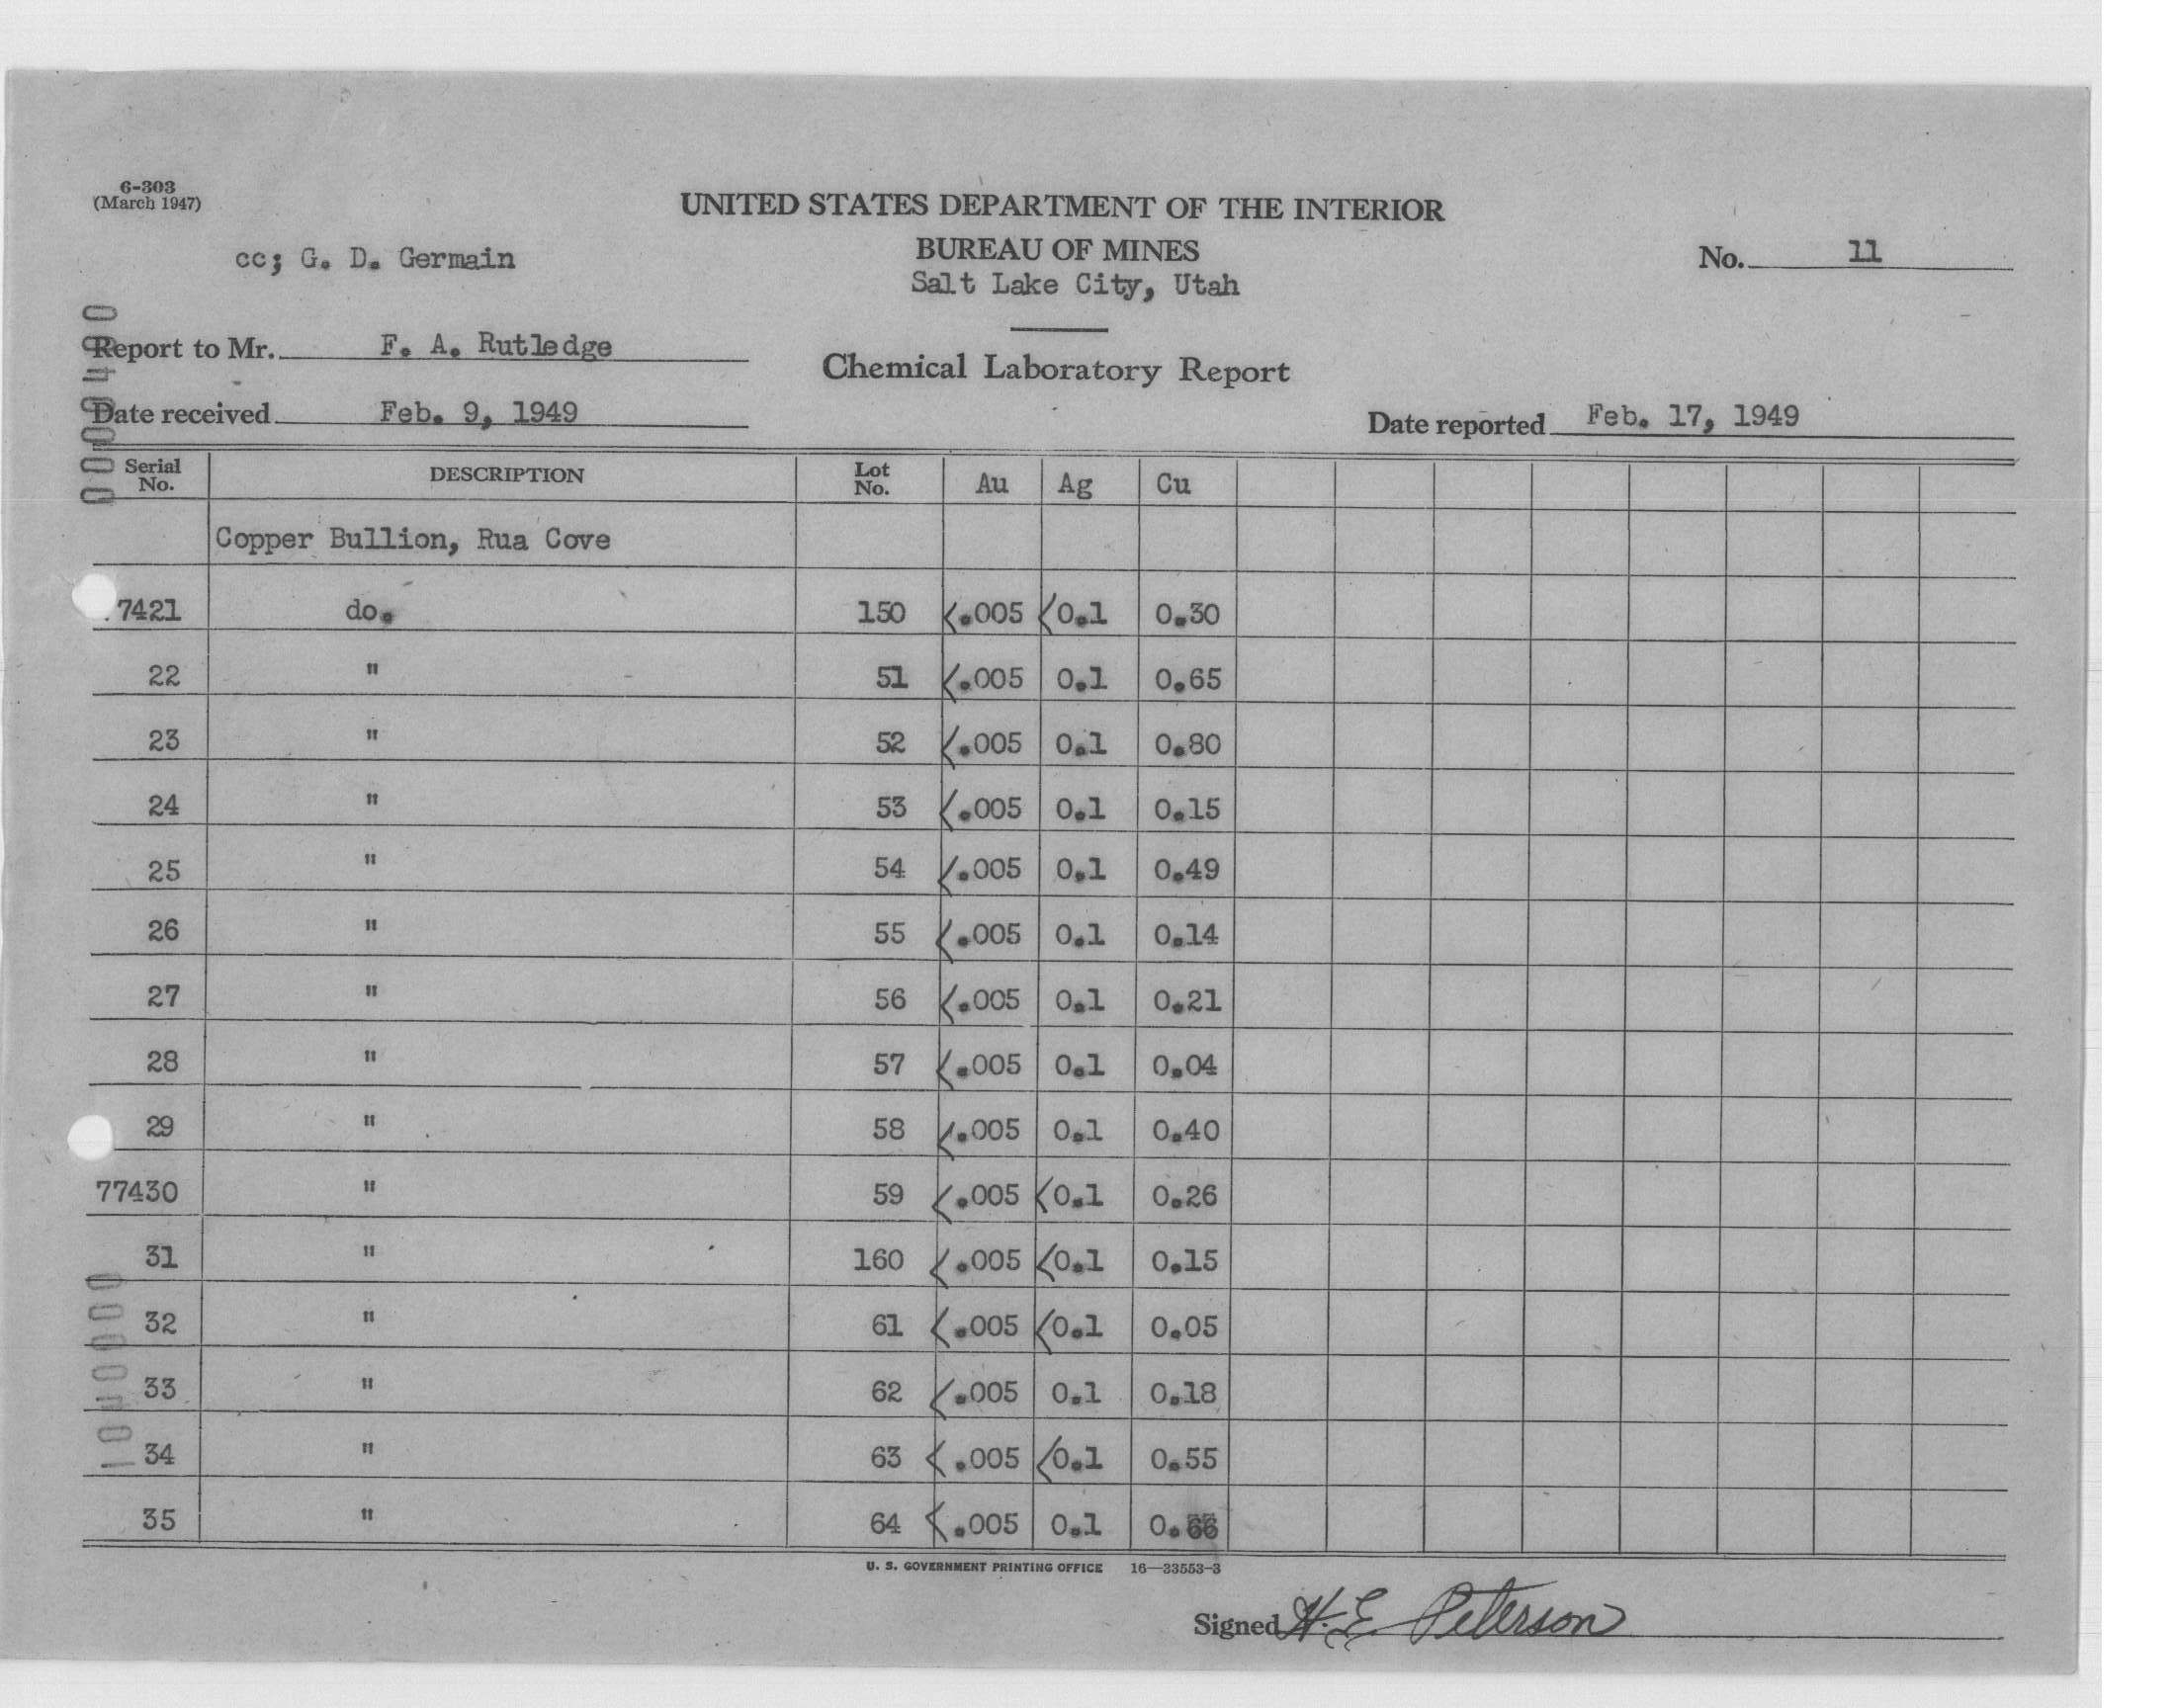 6-303
(March 1947)
UNITED STATES DEPARTMENT OF THE INTERIOR
cc; G. D. Germain
BUREAU OF MINES
No. 11
Salt Lake City, Utah
Report to Mr. F. A. Rutledge
Chemical Laboratory Report
Date received Feb. 9, 1949
Date reported Feb. 17, 1949
Serial No. DESCRIPTION Lot No. Au Ag Cu
Copper Bullion, Rua Cove
7421 do. 150 <.005 <0.1 0.30
22 " 51 <.005 0.1 0.65
23 " 52 <.005 0.1 0.80
24 " 53 <.005 0.1 0.15
25 " 54 <.005 0.1 0.49
26 " 55 <.005 0.1 0.14
27 " 56 <.005 0.1 0.21
28 " 57 <.005 0.1 0.04
29 " 58 <.005 0.1 0.40
77430 " 59 <.005 <0.1 0.26
31 " 160 <.005 <0.1 0.15
32 " 61 <.005 <0.1 0.05
33 " 62 <.005 0.1 0.18
34 " 63 <.005 <0.1 0.55
35 " 64 <.005 0.1 0.66
U. S. GOVERNMENT PRINTING OFFICE 16—33553-3
Signed H. E. Peterson